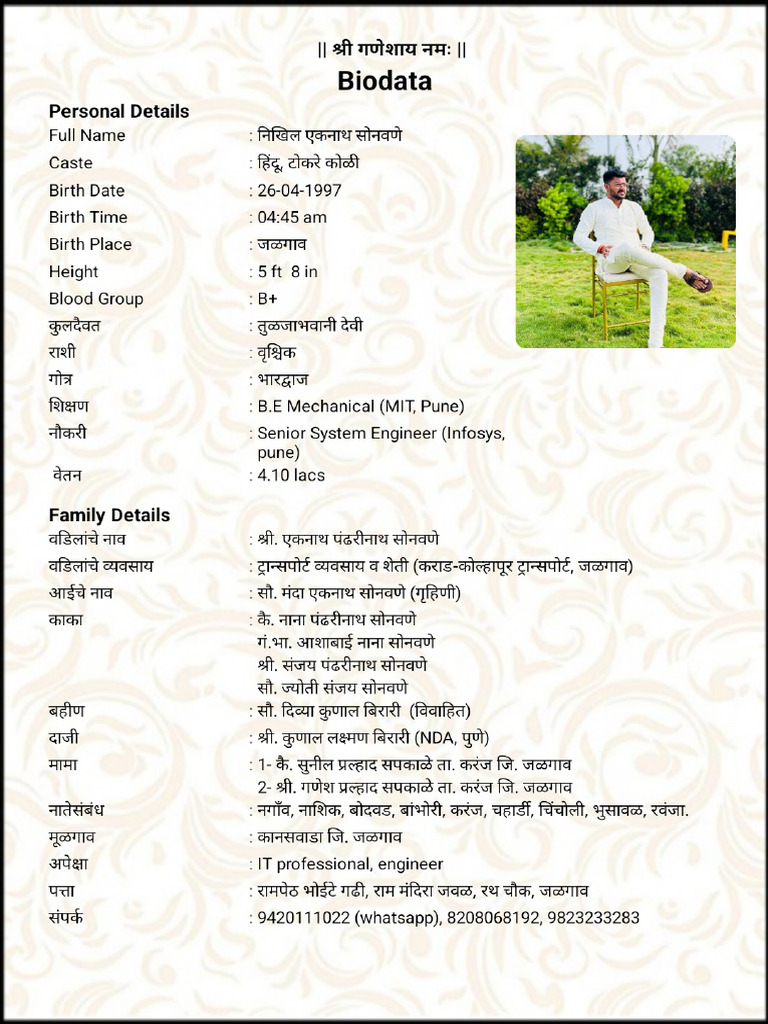 || श्री गणेशाय नमः ||
Biodata
Personal Details
Full Name : निखिल एकनाथ सोनवणे
Caste : हिंदू, टोकरे कोळी
Birth Date : 26-04-1997
Birth Time : 04:45 am
Birth Place : जळगाव
Height : 5 ft 8 in
Blood Group : B+
कुलदैवत : तुळजाभवानी देवी
राशी : वृश्चिक
गोत्र : भारद्वाज
शिक्षण : B.E Mechanical (MIT, Pune)
नौकरी : Senior System Engineer (Infosys,
pune)
वेतन : 4.10 lacs
Family Details
वडिलांचे नाव : श्री. एकनाथ पंढरीनाथ सोनवणे
वडिलांचे व्यवसाय : ट्रान्सपोर्ट व्यवसाय व शेती (कराड-कोल्हापूर ट्रान्सपोर्ट, जळगाव)
आईचे नाव : सौ. मंदा एकनाथ सोनवणे (गृहिणी)
काका : कै. नाना पंढरीनाथ सोनवणे
गं.भा. आशाबाई नाना सोनवणे
श्री. संजय पंढरीनाथ सोनवणे
सौ. ज्योती संजय सोनवणे
बहीण : सौ. दिव्या कुणाल बिरारी (विवाहित)
दाजी : श्री. कुणाल लक्ष्मण बिरारी (NDA, पुणे)
मामा : 1- कै. सुनील प्रल्हाद सपकाळे ता. करंज जि. जळगाव
2- श्री. गणेश प्रल्हाद सपकाळे ता. करंज जि. जळगाव
नातेसंबंध : नगाँव, नाशिक, बोदवड, बांभोरी, करंज, चहार्डी, चिंचोली, भुसावळ, रवंजा.
मूळगाव : कानसवाडा जि. जळगाव
अपेक्षा : IT professional, engineer
पत्ता : रामपेठ भोईटे गढी, राम मंदिरा जवळ, रथ चौक, जळगाव
संपर्क : 9420111022 (whatsapp), 8208068192, 9823233283